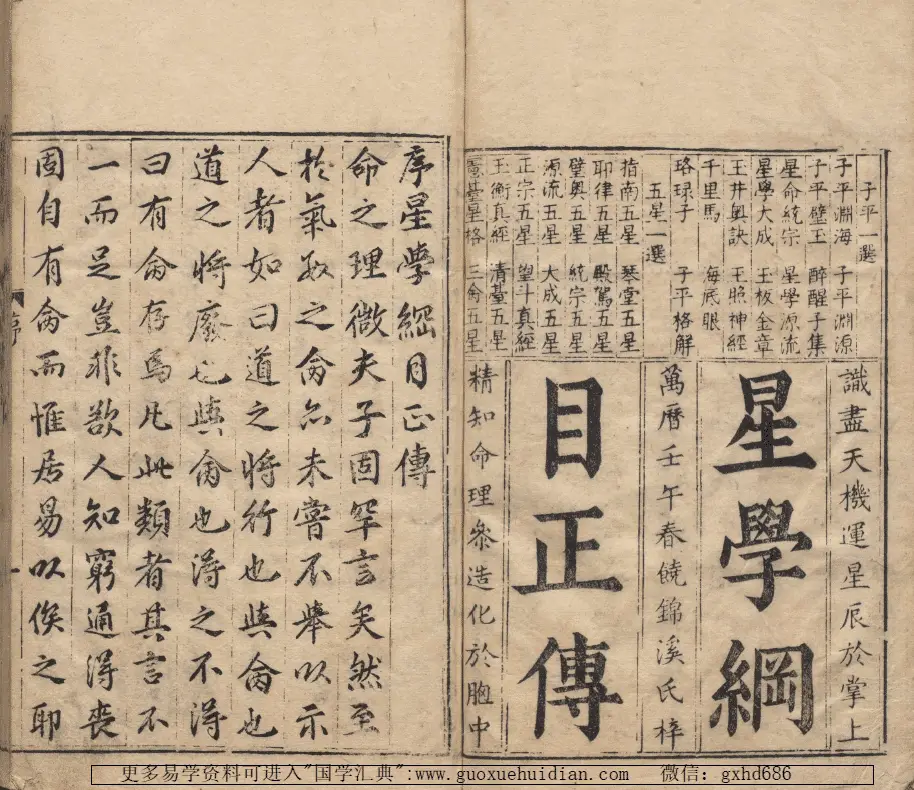 子平一選
子平淵海 子平淵源
子平璧玉 醉醒子集
星命統宗 星學源流
星學大成 玉板金章
玉井奧訣 玉照神經
千里馬 海底眼
珞琭子 子平格解
五星一選
指南五星 琴堂五星
耶律五星 殿駕五星
璧奧五星 統宗五星
源流五星 大成五星
正宗五星 望斗真經
玉衡真經 清臺五星
臺星格 三命五星
識盡天機運星辰於掌上
星學綱
萬曆壬午春饒錦溪氏梓
目正傳
精知命理參造化於胸中
序星學綱目正傳
命之理微夫子固罕言矣然至
於氣數之命亦未嘗不舉以示
人者如曰道之將行也與命也
道之將廢也與命也得之不得
曰有命存焉凡此類者其言不
一而足豈非欲人知窮通得喪
固自有命而惟居易以俟之耶
序 一
更多易学资料可进入"国学汇典":www.guoxuehuidian.com 微信：gxhd686